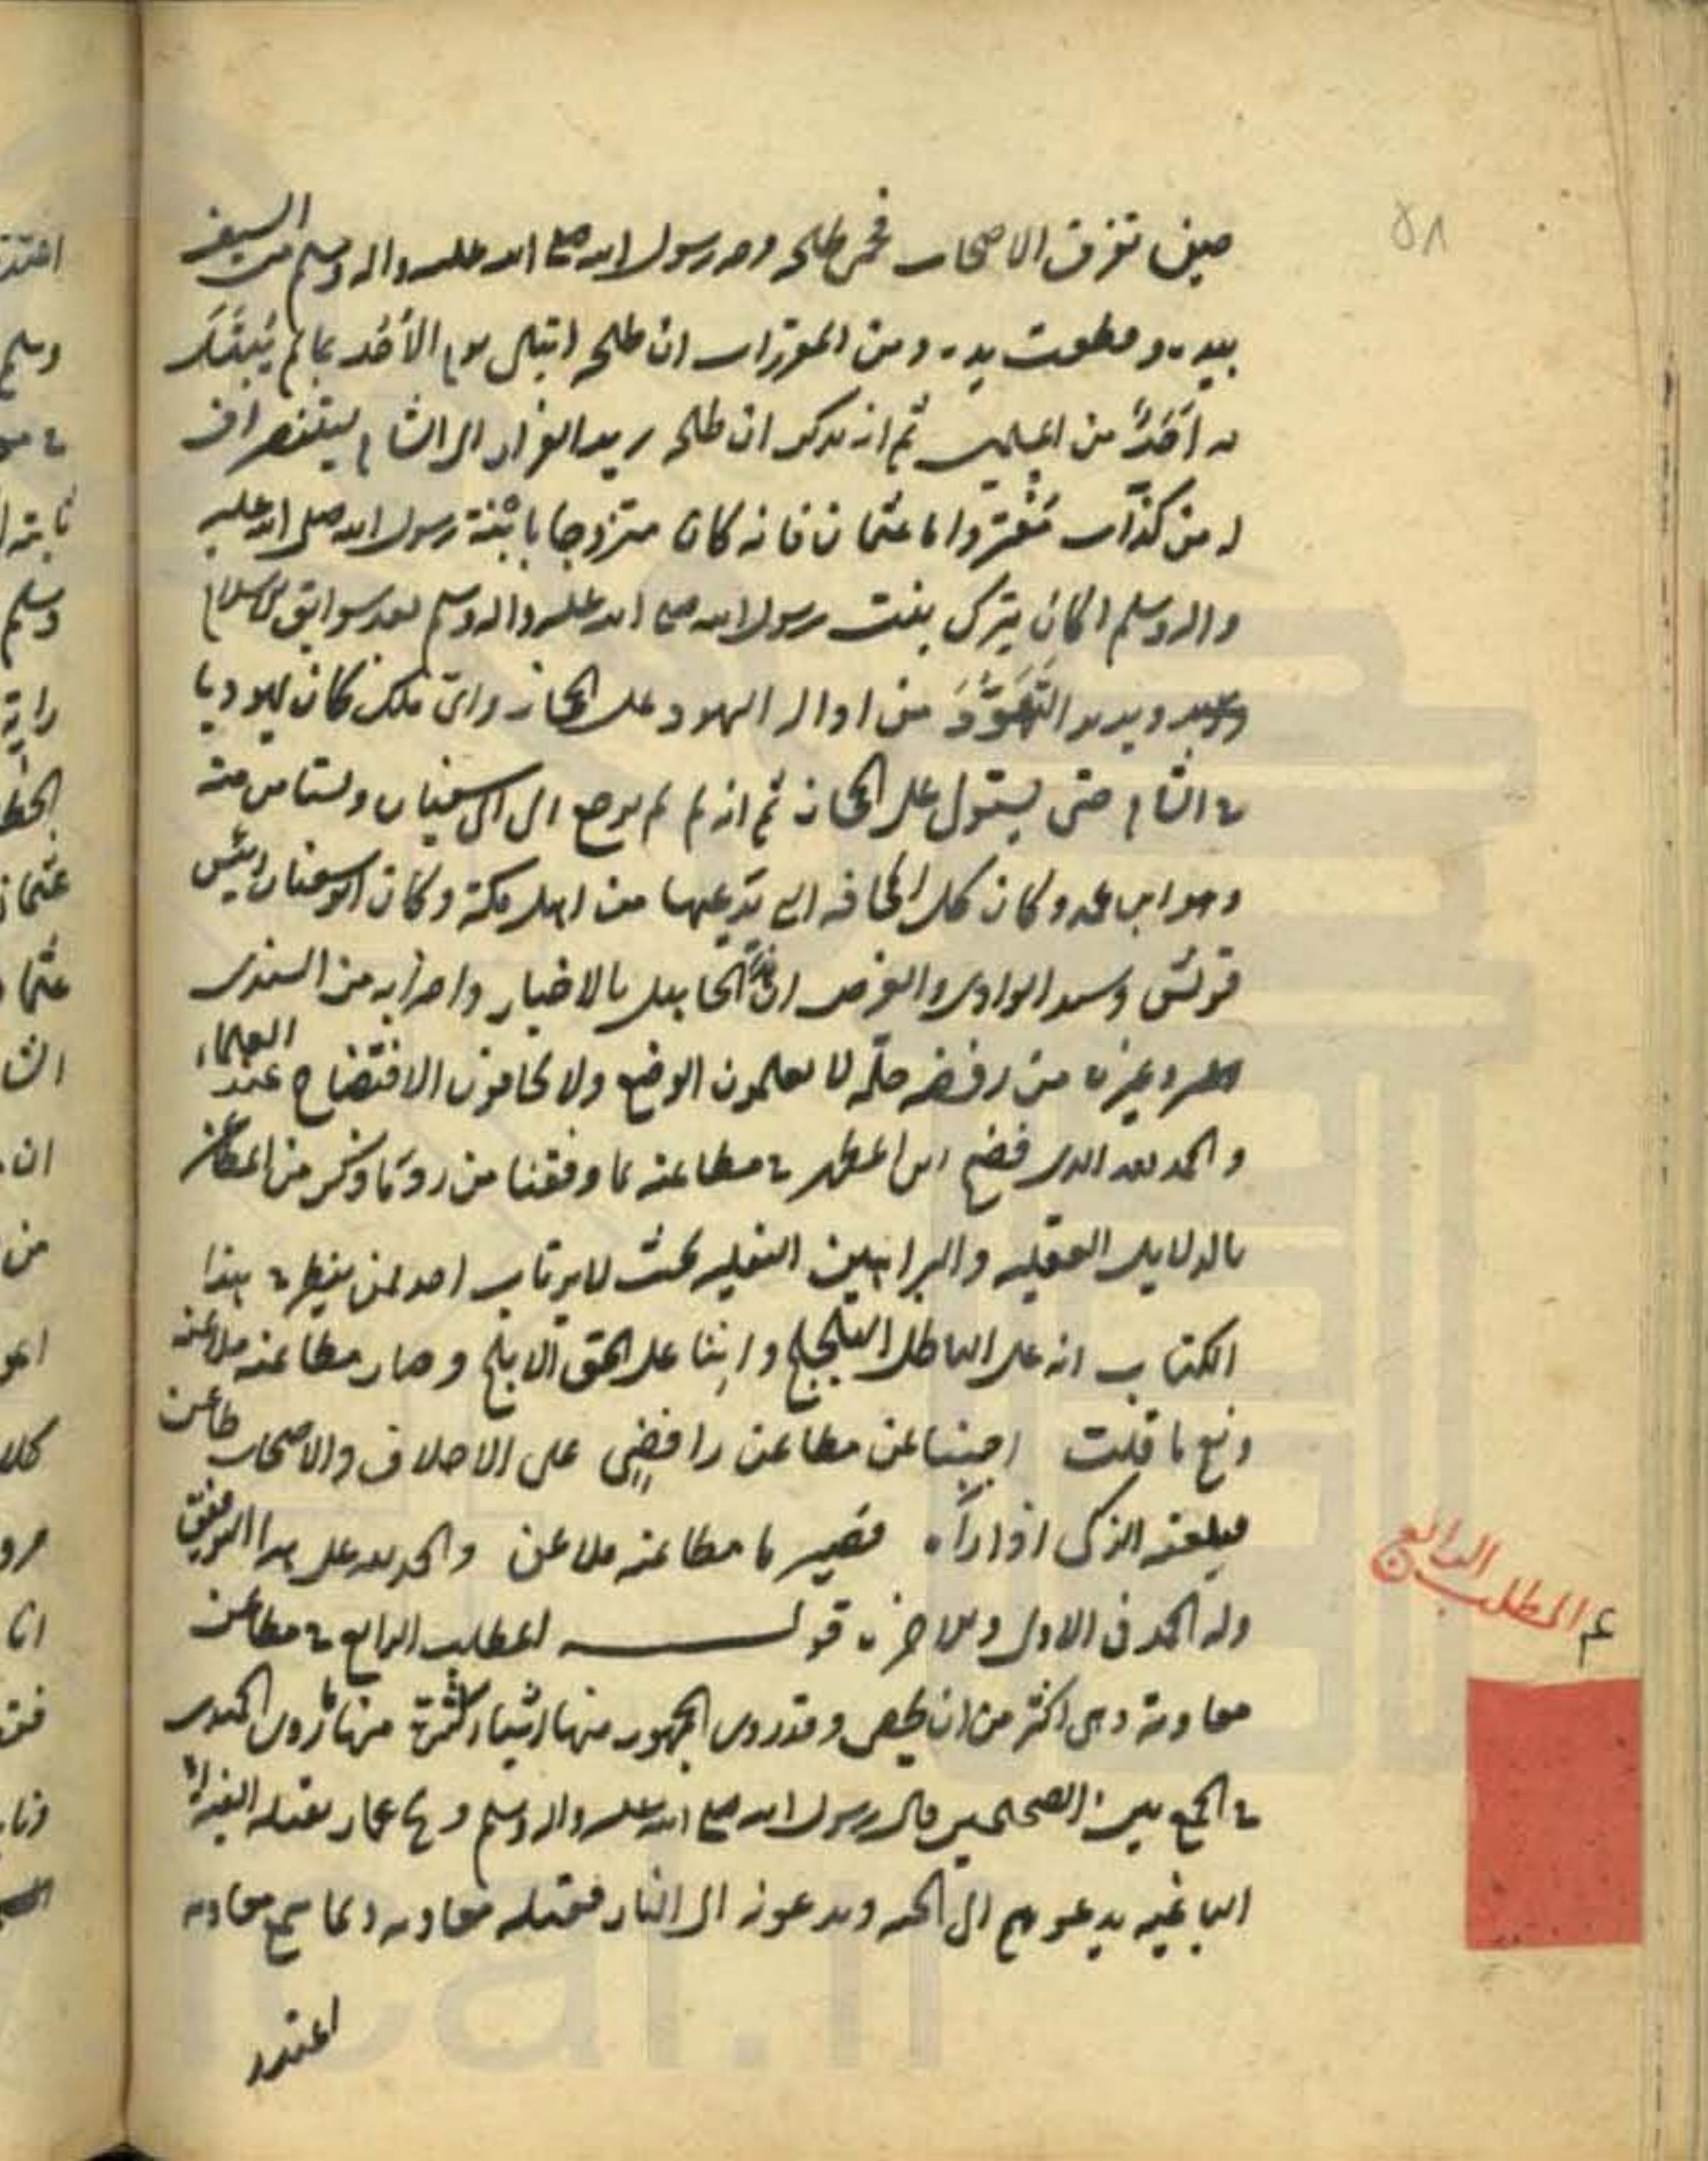 ٥٨
حين تفرق الاصحاب فحمى طلحه وجه رسول الله صلى الله عليه واله وسلم من السيف
بيده وقطعت يده ومن المقررات ان طلحه ابتلى يوم الأحُد بما لم يُبتَلَ
به أحَدٌ من المسلمين ثم انه يذكر ان طلحه يريد الفرار الى الشام ليتنصر اف
له من كذّاب مُفتر واما عثمان فانه كان متزوجا بابْنة رسول الله صلى الله عليه
واله وسلم اكان يترك بنت رسول الله صلى الله عليه واله وسلم بعد سوابق الاسلام
ويريد التهَوُّدَ من اوال اليهود على الحجاز وائ ملك كان لليهود يا
في الشام حتى يستولى على الحجاز ثم انه لم لم يرجع الى ابى سفيان ويستامن منه
وهو ابن عمه وكان كل المخافه التى يدعيها من اهل مكة وكان ابو سفيان رئيس
قريش وسيد الوادى والغرض ان الجاهل بالاخبار واضرابه من السندى
وغيره من رفضه حلّه لا يعلمون الوضع ولا يخافون الافتضاح عند العلماء
والحمد لله الذى فضح ابن المطهر في مطاعنه بما وفقنا من رد ما ذكر من المطاعن
بالدلايل العقليه والبراهين النقليه بحيث لا يرتاب احد لمن ينظر في هذا
الكتاب انه على الباطل اللجلج واننا على الحق الابلج وصار مطاعنه ملاعنه
ونعم ما قلت اجبنا عن مطاعن رافضىٍ على الاخلاف والاصحاب طاعن
فيلعنه الذكى اذا رآه فصيرنا مطاعنه ملاعن والحمد لله على هذا التوفيق
وله الحمد فى الاولى والاخرة قولـــه المطلب الرابع في مطاعن
معاوية وهى اكثر من ان يحصى وقدروى الجمهور منها اشياء كثيرة منها ما روى الحميدى
في الجمع بين الصحيحين قال رسول الله صلى الله عليه واله وسلم ويح عمار يقتله الفئة
الباغيه يدعوهم الى الجنه ويدعونه الى النار فقتله معاويه ولما سمع معاويه
اعتذر
المطلب الرابع